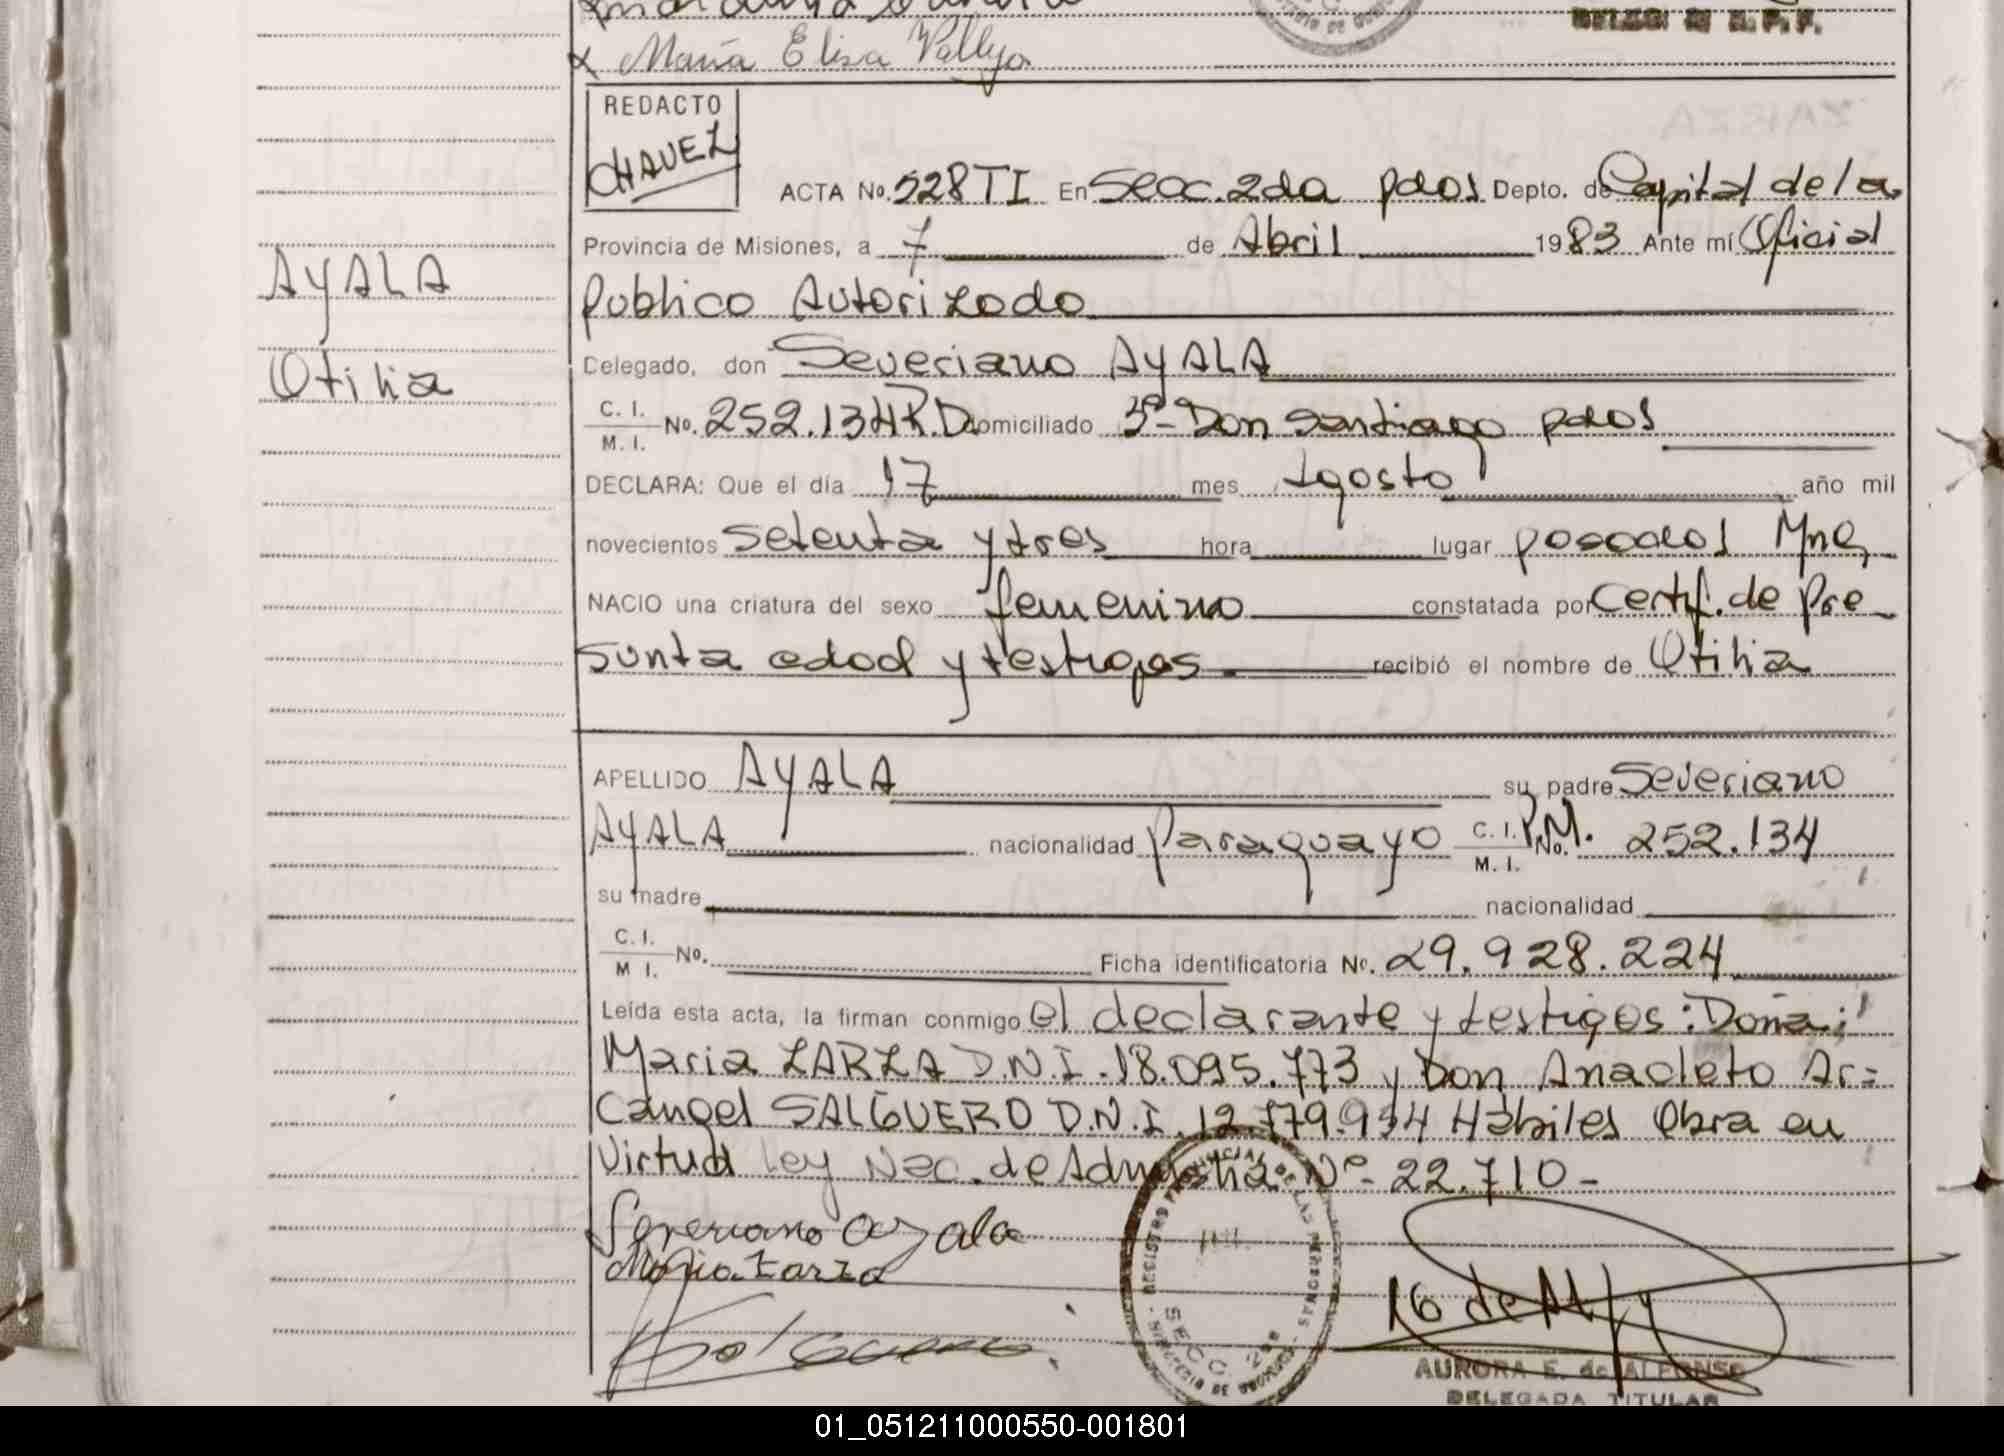 María Elisa Vallejo
REDACTO
CHAVEZ
ACTA No. 528 TI En Secc. 2da pdas Depto. de Capital de la
Provincia de Misiones, a 7 de Abril 1983 Ante mí Oficial
AYALA
Publico Autorizado
Delegado, don Severiano AYALA
Otilia
C. I. / M. I. No. 252.134 P.D. Domiciliado 3º- Don Santiago pdas
DECLARA: Que el día 17 mes Agosto año mil
novecientos setenta y tres hora lugar posadas Mnes
NACIO una criatura del sexo femenino constatada por Certif. de Pre
sunta edad y testigos recibió el nombre de Otilia
APELLIDO AYALA su padre Severiano
AYALA nacionalidad Paraguayo C. I. / M. I. No. 252.134
su madre nacionalidad
C. I. / M I. No. Ficha identificatoria No. 29.928.224
Leída esta acta, la firman conmigo el declarante y testigos: Doña;
Maria ZARZA D.N.I. 18.095.773 y Don Anacleto Ar=
cangel SALGUERO D.N.I. 12.779.934 Hábiles Obra en
Virtud Ley Nac. de Admnistia Nº- 22.710-
Severiano Ayala
Maria Zarza
SECC. 2da
AURORA E. de ALFONSO
DELEGADA TITULAR
01_051211000550-001801